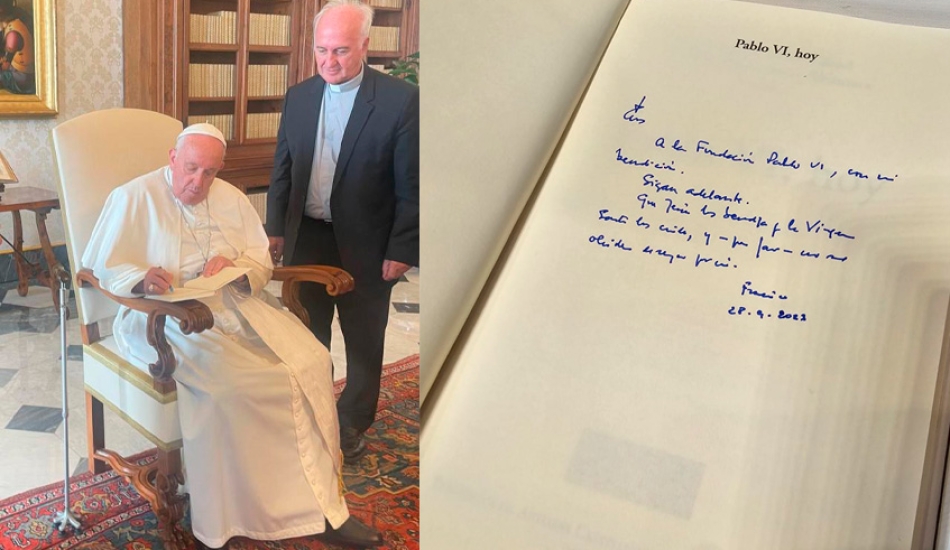 Pablo VI, hoy
A la Fundación Pablo VI, con mi
bendición.
Sigan adelante.
Que Jesús los bendiga y la Virgen
Santa los cuide, y -por favor- no se
olviden rezar por mí.
Francisco
28.9.2022